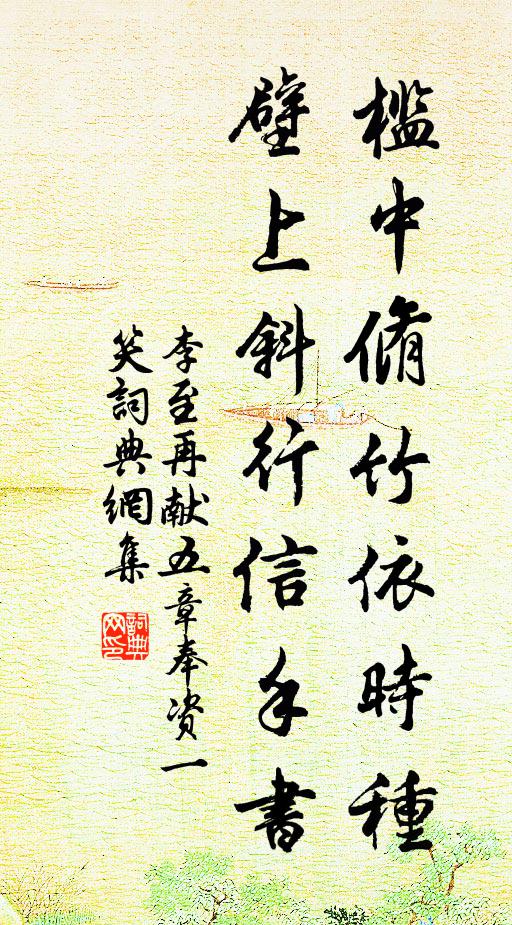 檻中脩竹依時種
壁上斜行信手書
李至再献五章奉资一
笑詞典網集
詞典網印